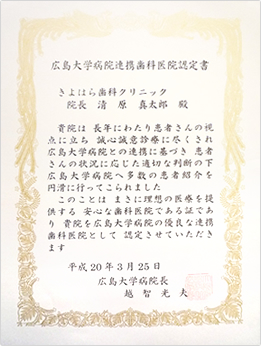 広島大学病院連携歯科医院認定書
きよはら歯科クリニック
院長 清原 真太郎 殿
貴院は 長年にわたり患者さんの視
点に立ち 誠心誠意診療に尽くされ
広島大学病院との連携に基づき 患者
さんの状況に応じた適切な判断の下
広島大学病院へ多数の患者紹介を
円滑に行ってこられました
このことは まさに理想の医療を提
供する 安心な歯科医院である証であ
り 貴院を広島大学病院の優良な連携
歯科医院として 認定させていただき
ます
平成20年3月25日
広島大学病院長
越智光夫